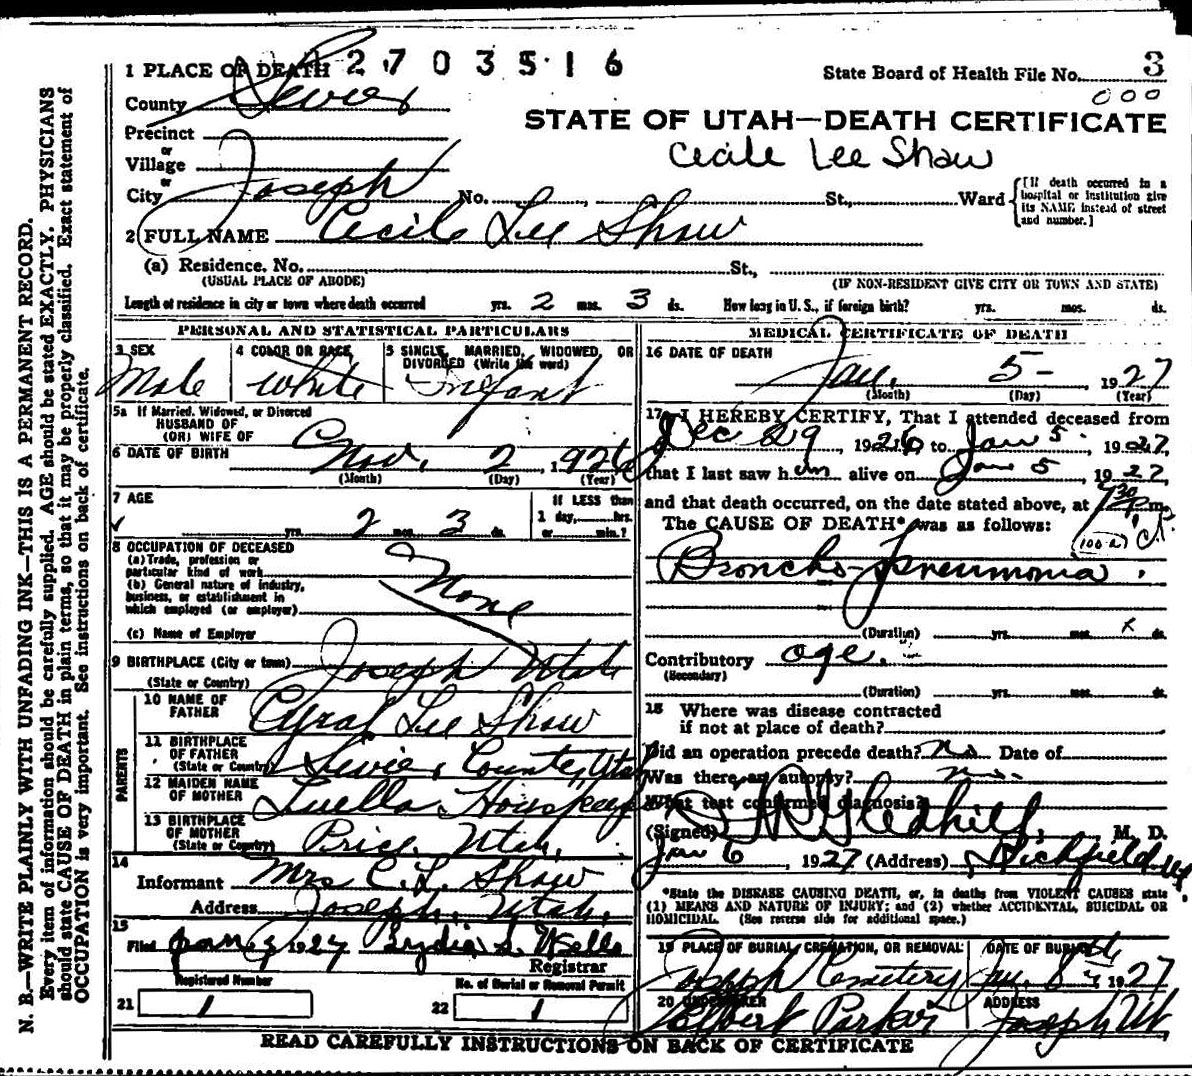 1 PLACE OF DEATH 2 7 0 3 5 1 6
State Board of Health File No. 3
000
County Sevier
STATE OF UTAH—DEATH CERTIFICATE
Precinct
or
Cecile Lee Shaw
Village
or
City Joseph No. , St., Ward
[If death occurred in a
hospital or institution give
its NAME instead of street
and number.]
2 FULL NAME Cecile Lee Shaw
(a) Residence. No. St.,
(USUAL PLACE OF ABODE) (IF NON-RESIDENT GIVE CITY OR TOWN AND STATE)
Length of residence in city or town where death occurred yrs. 2 mos. 3 ds. How long in U. S., if foreign birth? yrs. mos. ds.
PERSONAL AND STATISTICAL PARTICULARS
3 SEX Male
4 COLOR OR RACE White
5 SINGLE, MARRIED, WIDOWED, OR
DIVORCED (Write the word)
Infant
5a If Married, Widowed, or Divorced
HUSBAND OF
(OR) WIFE OF
6 DATE OF BIRTH Nov. 2, 1926
(Month) (Day) (Year)
7 AGE
yrs. 2 mos. 3 ds.
If LESS than
1 day, hrs.
or min.?
8 OCCUPATION OF DECEASED
(a) Trade, profession or
particular kind of work
(b) General nature of industry,
business, or establishment in
which employed (or employer)
None
(c) Name of Employer
9 BIRTHPLACE (City or town) Joseph Utah
(State or Country)
PARENTS
10 NAME OF
FATHER
Cyral Lee Shaw
11 BIRTHPLACE
OF FATHER
(State or Country)
Sevier County, Utah
12 MAIDEN NAME
OF MOTHER
Luella
13 BIRTHPLACE
OF MOTHER
(State or Country)
Price, Utah,
14
Informant Mrs C. L. Shaw
Address Joseph, Utah,
15
Filed Jan 1927 Lydia S. Wells
Registrar
Registered Number
No. of Burial or Removal Permit
21 1
22 1
MEDICAL CERTIFICATE OF DEATH
16 DATE OF DEATH
Jan. 5-, 1927
(Month) (Day) (Year)
17 I HEREBY CERTIFY, That I attended deceased from
Dec 29 1926 to Jan 5, 1927
that I last saw him alive on Jan 5, 1927
and that death occurred, on the date stated above, at 7 30 P.m.
The CAUSE OF DEATH* was as follows:
Broncho-Pneumonia.
(Duration) yrs. mos. x ds.
Contributory age.
(Secondary)
(Duration) yrs. mos. ds.
18 Where was disease contracted
if not at place of death?
Did an operation precede death? no Date of
Was there an autopsy? no.
What test confirmed diagnosis?
(Signed) Gledhill, M. D.
Jan 6, 1927 (Address) Richfield Ut.
*State the DISEASE CAUSING DEATH, or, in deaths from VIOLENT CAUSES state
(1) MEANS AND NATURE OF INJURY; and (2) whether ACCIDENTAL, SUICIDAL OR
HOMICIDAL. (See reverse side for additional space.)
19 PLACE OF BURIAL, CREMATION, OR REMOVAL
Joseph Cemetery
DATE OF BURIAL
Jan. 8th, 1927
20 UNDERTAKER
Parker
ADDRESS
Joseph Ut
READ CAREFULLY INSTRUCTIONS ON BACK OF CERTIFICATE
N. B.—WRITE PLAINLY WITH UNFADING INK—THIS IS A PERMANENT RECORD.
Every item of information should be carefully supplied. AGE should be stated EXACTLY. PHYSICIANS
should state CAUSE OF DEATH in plain terms, so that it may be properly classified. Exact statement of
OCCUPATION is very important. See instructions on back of certificate.